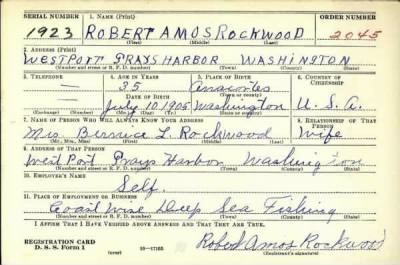 SERIAL NUMBER 1. NAME (Print) ORDER NUMBER
1923 ROBERT AMOS ROCKWOOD 2045
(First) (Middle) (Last)
2. ADDRESS (Print)
WESTPORT GRAYS HARBOR WASHINGTON
(Number and street or R. F. D. number) (Town) (County) (State)
3. TELEPHONE 4. AGE IN YEARS 5. PLACE OF BIRTH 6. COUNTRY OF CITIZENSHIP
— 35 Anacortes
DATE OF BIRTH (Town or county)
July 10 1905 Washington U. S. A.
(Exchange) (Number) (Mo.) (Day) (Yr.) (State or country)
7. NAME OF PERSON WHO WILL ALWAYS KNOW YOUR ADDRESS 8. RELATIONSHIP OF THAT PERSON
Mrs Bernice L. Rockwood Wife
(Mr., Mrs., Miss) (First) (Middle) (Last)
9. ADDRESS OF THAT PERSON
West Port Grays Harbor Washington
(Number and street or R. F. D. number) (Town) (County) (State)
10. EMPLOYER'S NAME
Self.
11. PLACE OF EMPLOYMENT OR BUSINESS
Coast Wise Deep Sea Fishing
(Number and street or R. F. D. number) (Town) (County) (State)
I AFFIRM THAT I HAVE VERIFIED ABOVE ANSWERS AND THAT THEY ARE TRUE.
REGISTRATION CARD
D. S. S. Form 1 (over) 16—17105 Robert Amos Rockwood
(Registrant's signature)